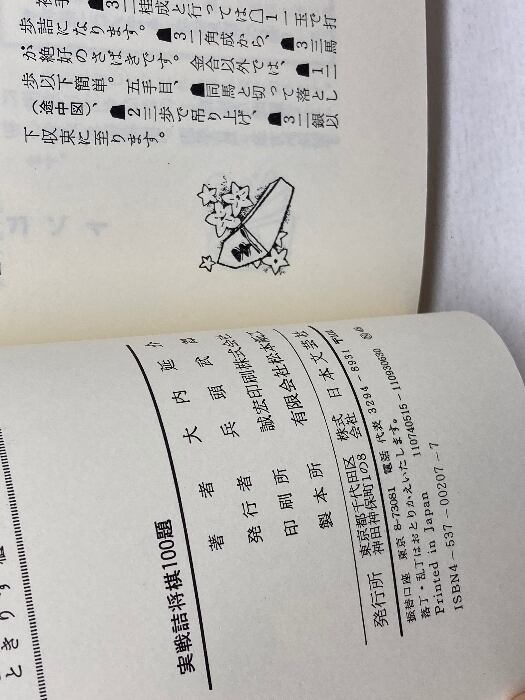 ☗3二桂成と行っては☖1一玉で打
歩詰になります。☗3二角成から、☗3三馬
が絶好のさばきです。金合以外では、☗1二
歩以下簡単。五手目、☗同馬と切って落とし
(途中図)、☗2三歩で吊り上げ、☗3二銀以
下収束に至ります。
実戦詰将棋100題
著者 大内延介
発行者 兵頭武
印刷所 誠宏印刷株式会社
製本所 有限会社松本
発行所 東京都千代田区神田神保町1の8 株式会社 日本文芸社
振替口座 東京 8-73081 電話 代表 3294-8931
落丁・乱丁はおとりかえいたします。 110740515-110930630
Printed in Japan
ISBN4-537-00207-7
ときりす